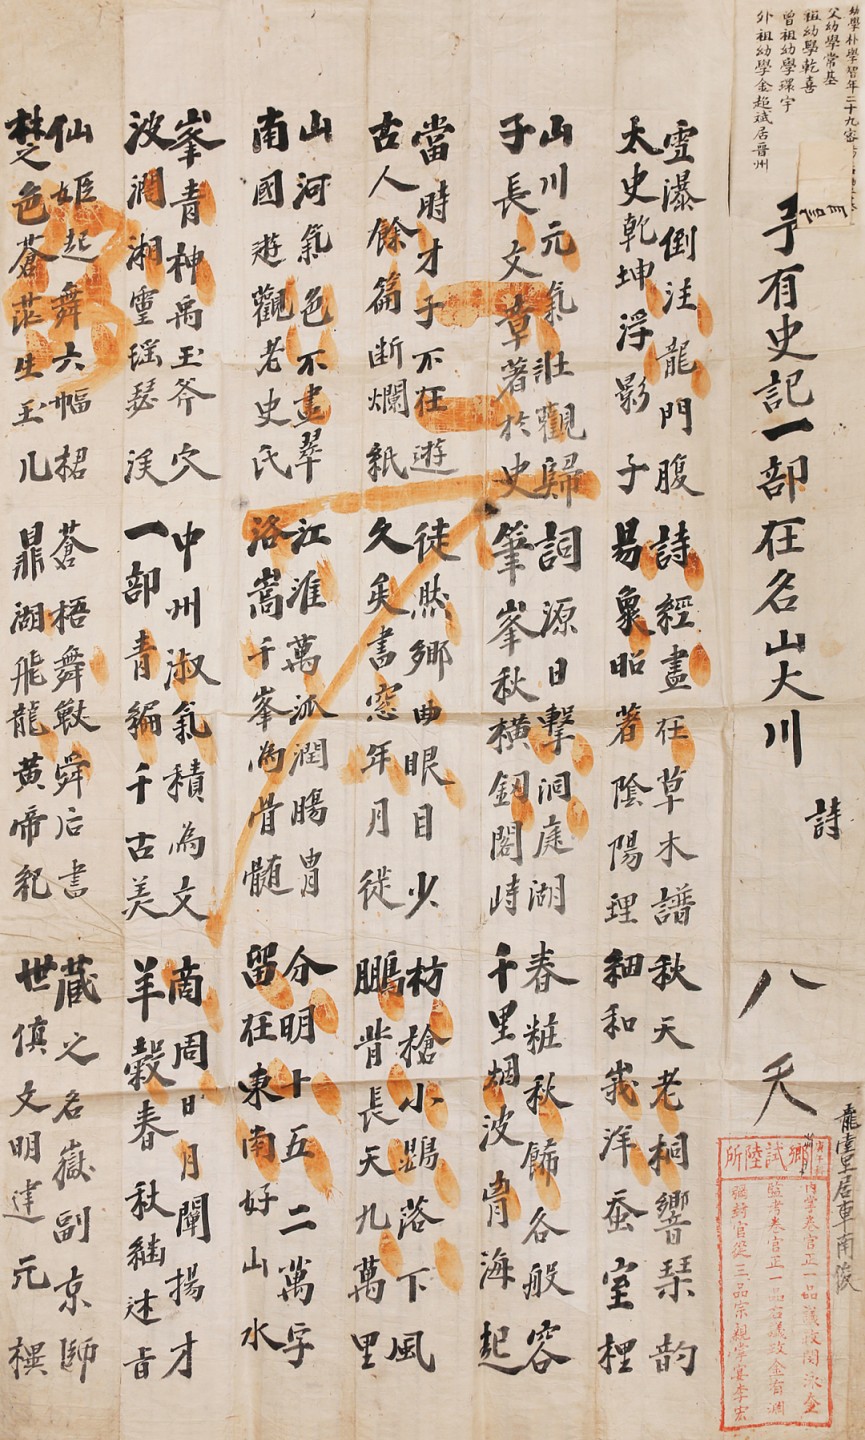 父幼學常基
祖幼學乾喜
曾祖幼學環宇
外祖幼學金起斌居晋州
予有史記一部在名山大川
詩
八天
龍塘里居車南俊
鄕試陸所
內掌卷官正一品議政閔泳奎
監考卷官正一品右議政金有淵
彌封官從三品宗親掌宴李宏
雪瀑倒注龍門腹 詩經盡在草木譜 秋天老桐響琴韵
太史乾坤浮影子 易象昭著陰陽理 細和峩洋蚕室裡
山川元氣壯觀歸 詞源日擊洞庭湖 春粧秋餙各般容
子長文章著於史 筆峯秋橫釼閣峙 千里烟波靑海起
當時才子不在遊 徒然鄕曲眼目少 枋槍小鷃落下風
古人餘篇断爛紙 久矣書窓年月徙 鵬背長天九萬里
山河氣色不盡翠 江淮萬派潤膓胃 分明十五二萬字
南國遊觀老史氏 洛嵩千峯為骨髓 留在東南好山水
峯青神禹玉斧穴 中州淑氣積為文 商周日月闡揚才
波潤湘靈瑤瑟涘 一部青編千古美 羊穀春秋継述旨
仙姬起舞六幅裙 蒼梧舞獸舜后書 藏之名嶽副京師
楚色蒼茫生玉几 鼎湖飛龍黃帝紀 世傎文明建元禩